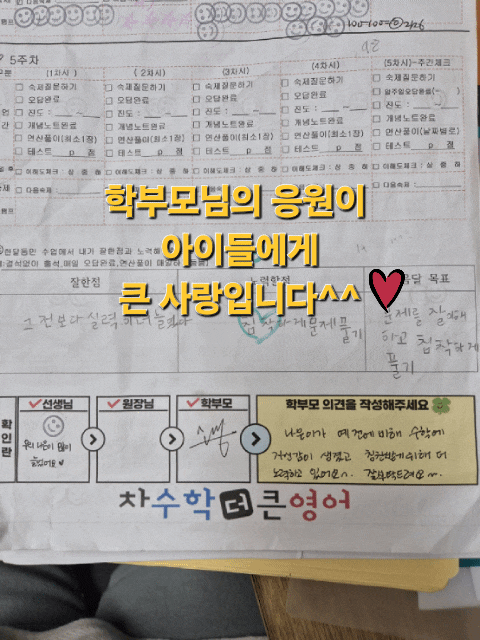 5주차
(1차시) (2차시) (3차시) (4차시) (5차시)-주간체크
숙제질문하기 숙제질문하기 숙제질문하기 숙제질문하기 숙제질문하기
오답완료 오답완료 오답완료 오답완료
진도 : 진도 : 진도 : 진도 : 진도 :
개념노트완료 개념노트완료 개념노트완료 개념노트완료 개념노트완료
연산풀이(최소1장) 연산풀이(최소1장) 연산풀이(최소1장) 연산풀이(최소1장) 연산풀이(날짜별로)
테스트 p 점 테스트 p 점 테스트 p 점 테스트 p 점 테스트 p 점
이해도체크 : 상 중 하 이해도체크 : 상 중 하 이해도체크 : 상 중 하 이해도체크 : 상 중 하 이해도체크 : 상 중 하
다음숙제 : 다음숙제 : 다음숙제 : 다음숙제 : 다음숙제 :
학부모님의 응원이
아이들에게
큰 사랑입니다^^
한달동안 수업에서 내가 잘한점과
잘한점 노력한점 목표
그 전보다 실력이 늘었다
침착하게 문제 풀기
문제를 잘
하고 침착하게
풀기
확인란
선생님 원장님 학부모 학부모 의견을 작성해주세요
우리 나윤이 많이
늘었어요
나윤이가 예전에 비해 수학에
자신감이 생겼고 침착하게 위해 더
노력하고 있어요^^. 잘부탁드려요~
차수학더큰영어